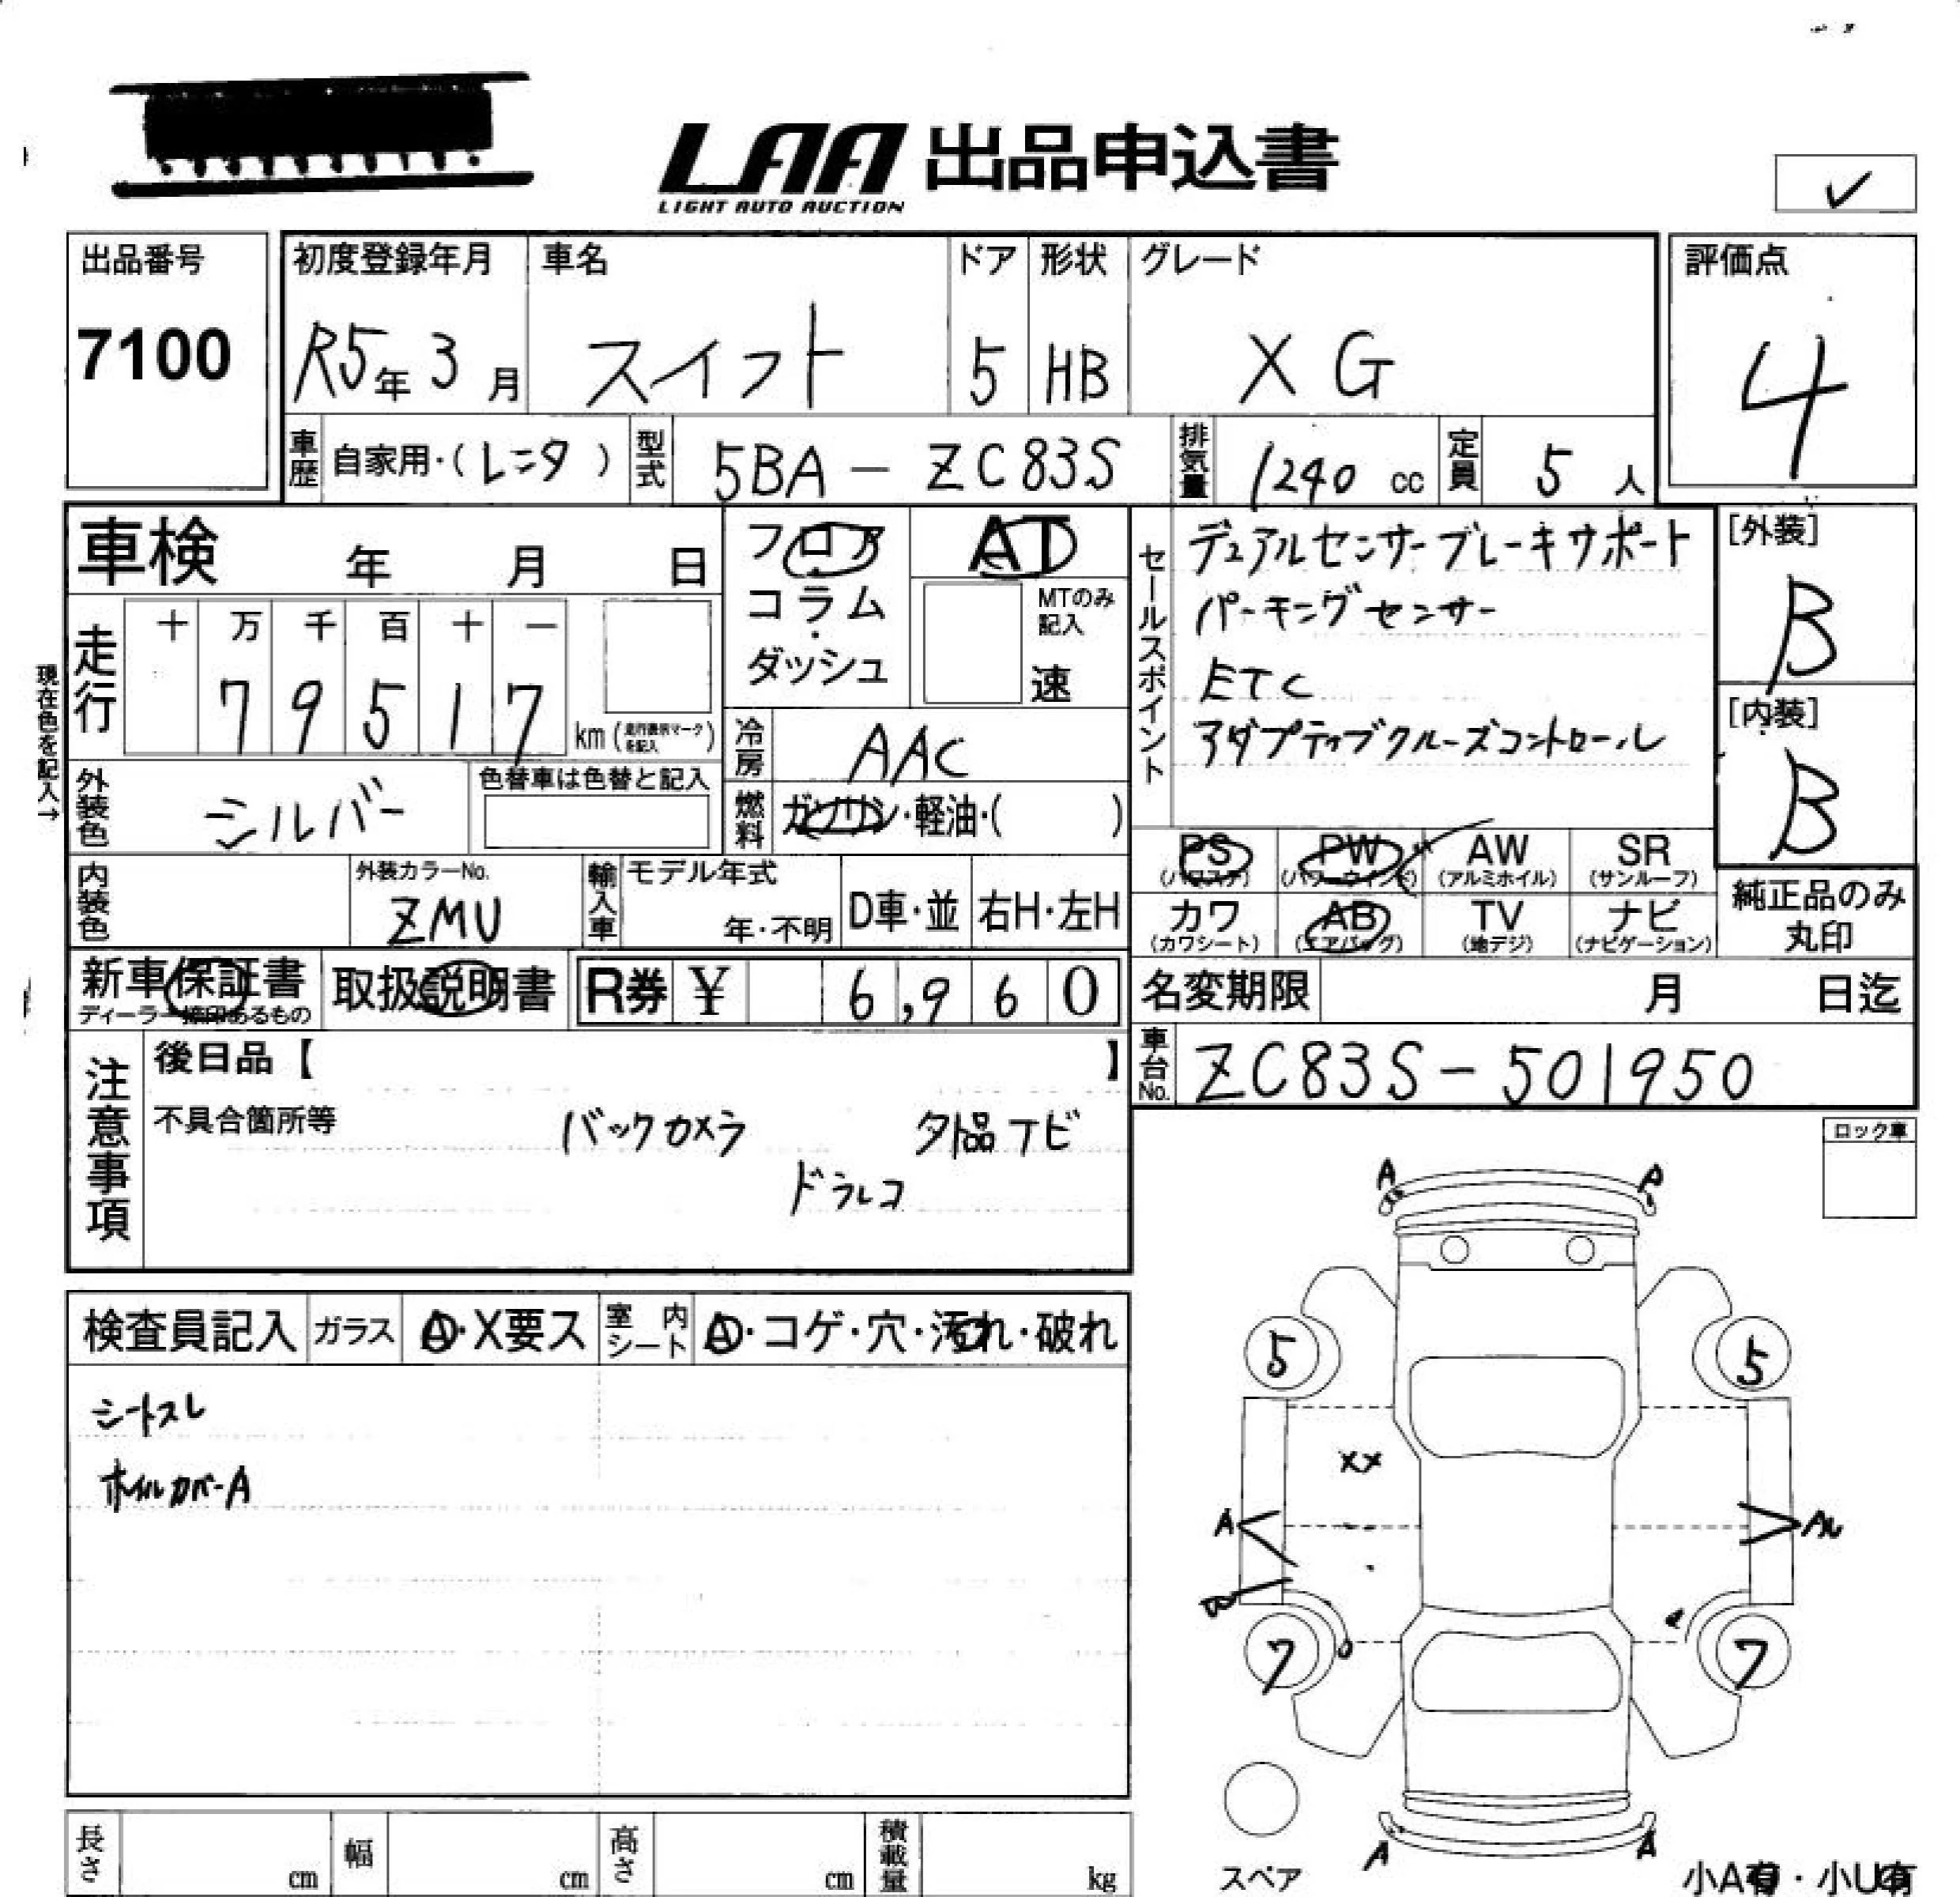 LAA 出品申込書
LIGHT AUTO AUCTION
✓
出品番号
7100
初度登録年月
R5年 3 月
車名
スイフト
ドア
5
形状
HB
グレード
XG
評価点
4
車歴 自家用・(レンタ)
型式 5BA-ZC83S
排気量 1240 cc
定員 5 人
車検 年 月 日
フロア
コラム
・
ダッシュ
AT
MTのみ
記入
速
セールスポイント
デュアルセンサーブレーキサポート
パーキングセンサー
ETC
アダプティブクルーズコントロール
[外装]
B
[内装]
B
現在色を記入→
走行
十 万 千 百 十 一
7 9 5 1 7
km(走行表示マークを記入)
冷房 AAC
外装色 シルバー
色替車は色替と記入
燃料 ガソリン・軽油・( )
PS
(パワステ)
PW
(パワーウインド)
AW
(アルミホイル)
SR
(サンルーフ)
カワ
(カワシート)
AB
(エアバッグ)
TV
(地デジ)
ナビ
(ナビゲーション)
純正品のみ
丸印
内装色
外装カラーNo.
ZMU
輸入車
モデル年式
年・不明
D車・並
右H・左H
新車保証書
ディーラー捺印あるもの
取扱説明書
R券 ¥ 6,960
名変期限 月 日迄
車台No. ZC83S-501950
注意事項
後日品【 】
不具合箇所等
バックカメラ 外品ナビ
ドラレコ
ロック車
検査員記入
ガラス A・X要ス
室内シート A・コゲ・穴・汚れ・破れ
シートスレ
ホイルカバーA
A
5 5
XX
A
7 7
A A
スペア
長さ cm
幅 cm
高さ cm
積載量 kg
小A有・小U有